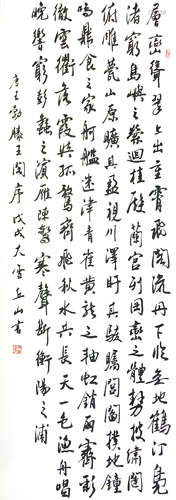 層巒聳翠上出重霄飛閣流丹下臨無地鶴汀凫
渚窮島嶼之縈迴桂殿蘭宮列岡巒之體勢披繡闥
俯雕甍山原曠其盈視川澤盱其駭矚閭閻撲地鐘
鳴鼎食之家舸艦迷津青雀黃龍之軸虹銷雨霽彩
徹雲衢落霞與孤鶩齊飛秋水共長天一色漁舟唱
晚響窮彭蠡之濱雁陣驚寒聲斷衡陽之浦
唐王勃滕王閣序戊戌大雪丘山書